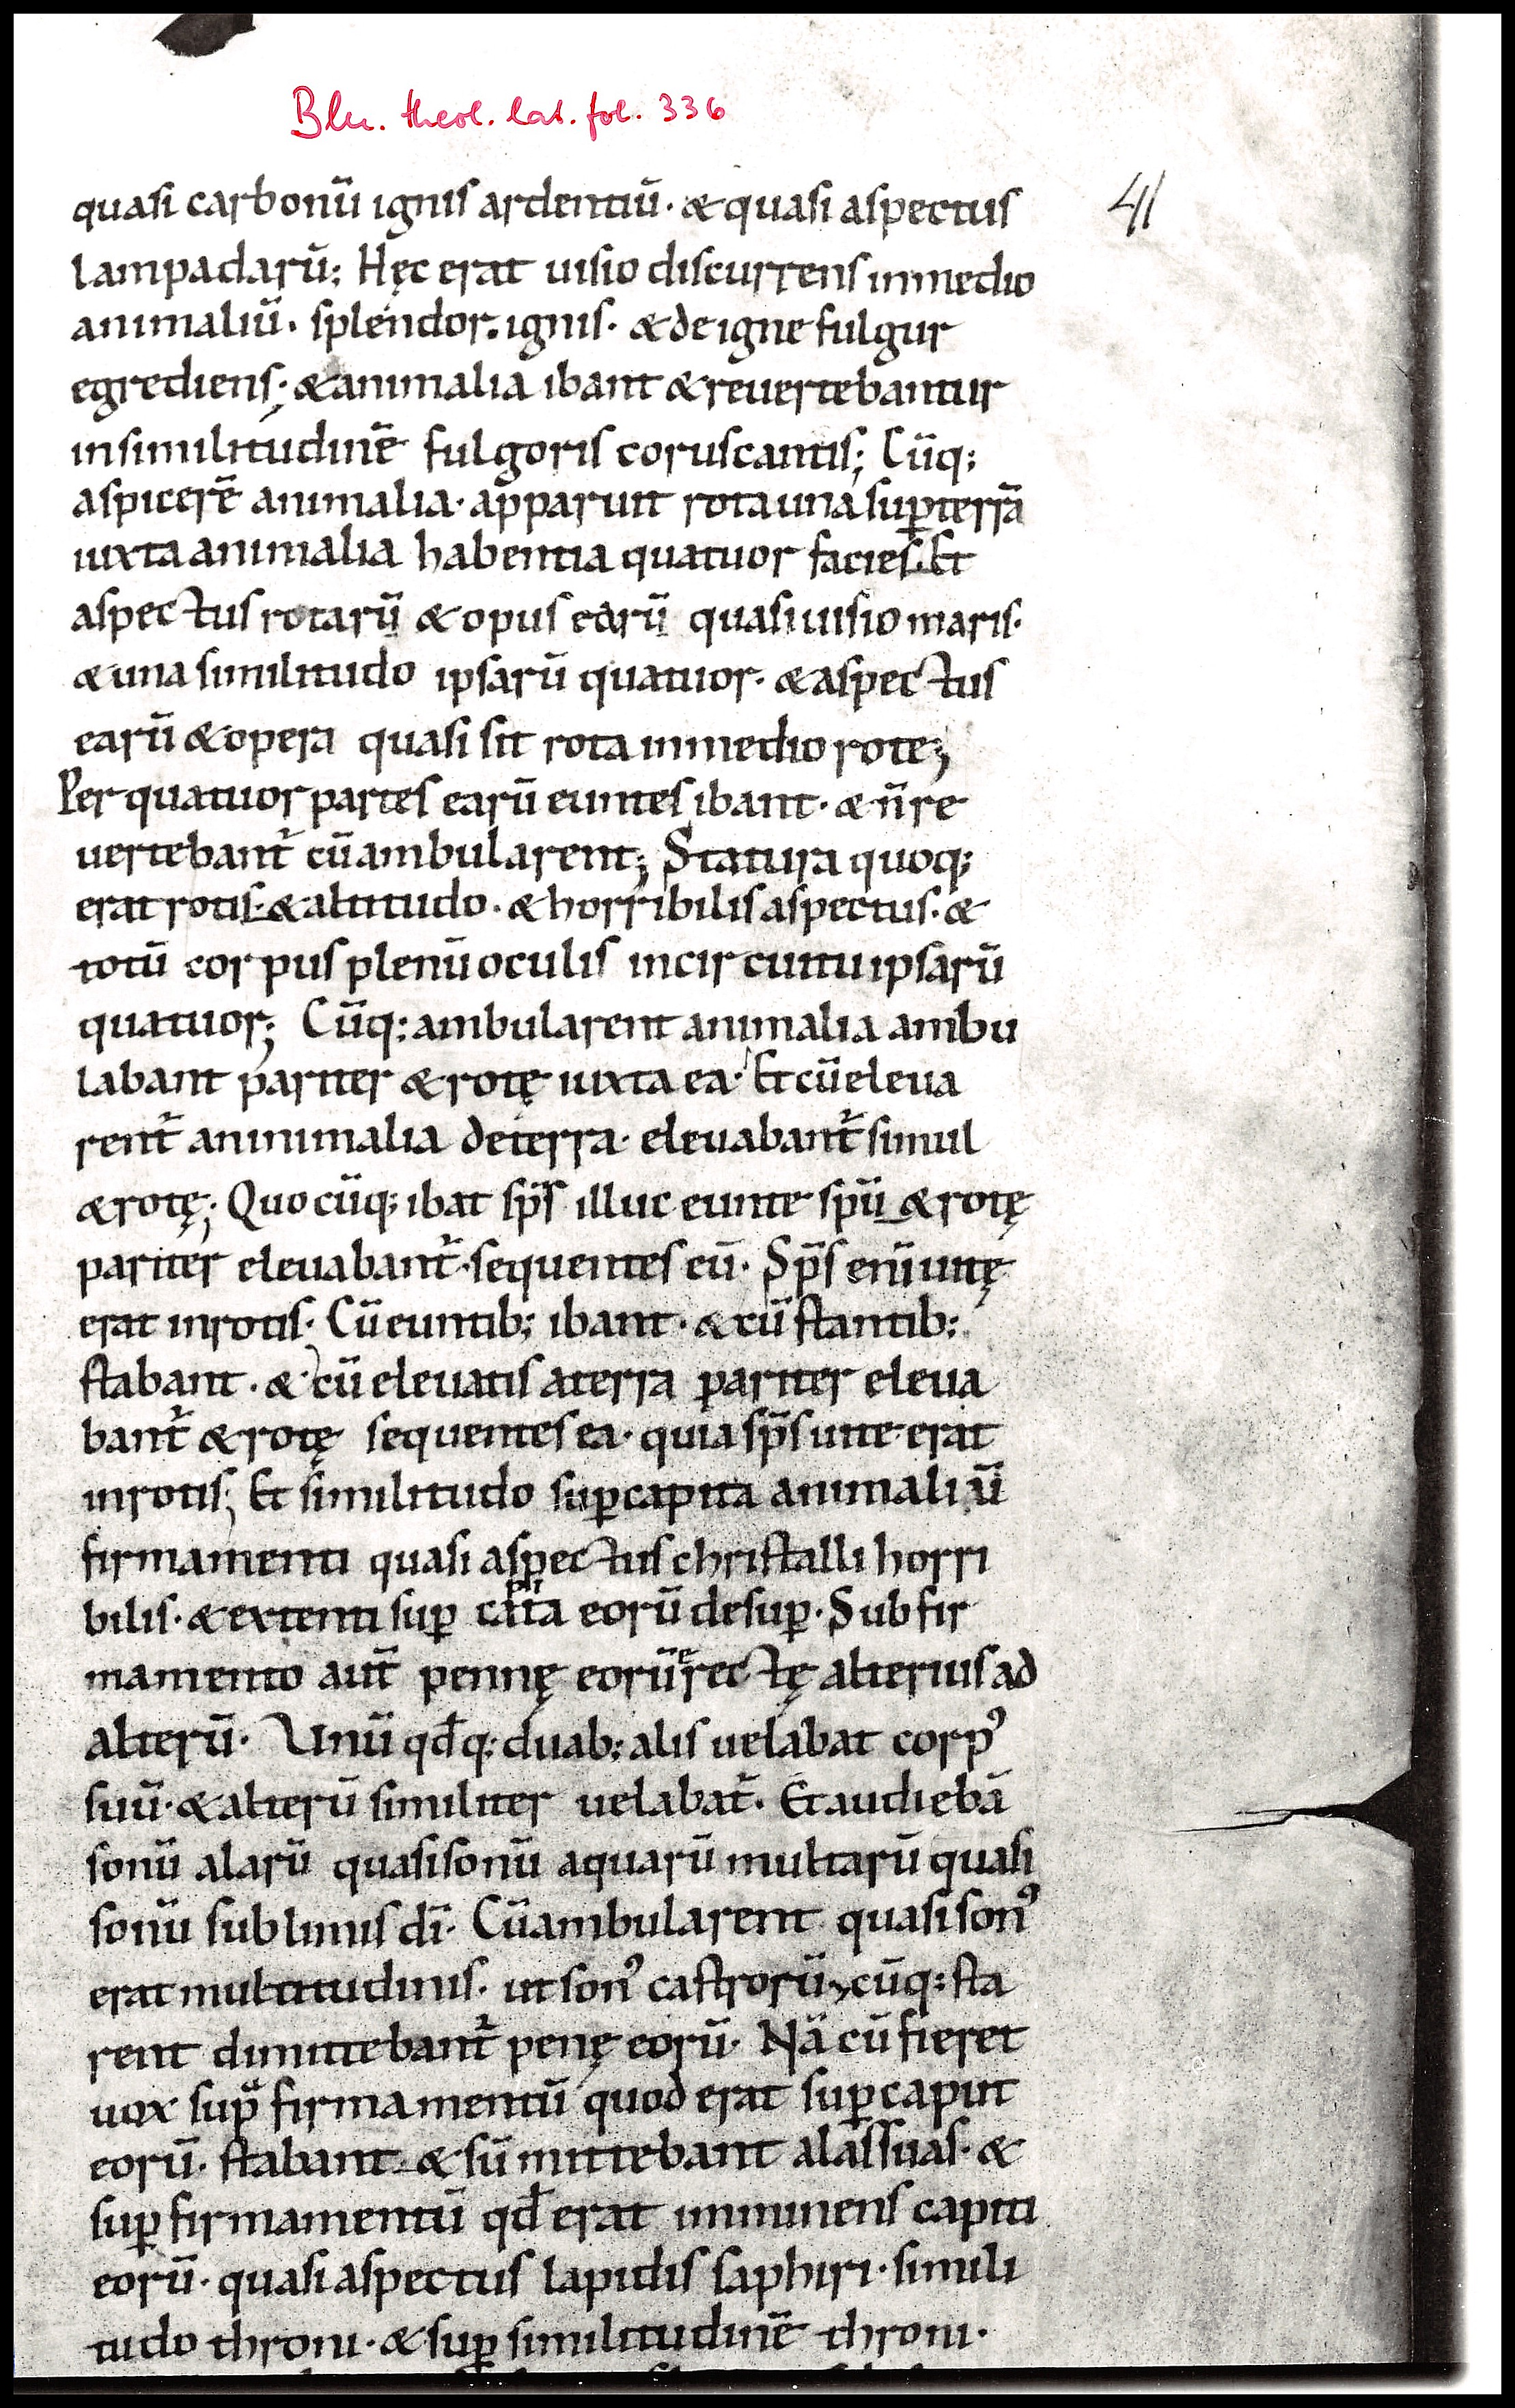 Bln. theol. lat. fol. 336
41
quasi carbonū ignis ardentiū· & quasi aspectus
lampadarū; Hęc erat uisio discurrens inmedio
animaliū· splendor· ignis· & de igne fulgur
egrediens; & animalia ibant & reuertebantur
insimilitudinē fulgoris coruscantis; Cūq;
aspicerē animalia· apparuit rota una sup̱ terrā
iuxta animalia habentia quatuor facies· Et
aspectus rotarū & opus earū quasi uisio maris·
& una similitudo ipsarū quatuor· & aspectus
earū & opera quasi sit rota inmedio rote;
Per quatuor partes earū euntes ibant· & n̄ re
uertebant̄ cū ambularent; Statura quoq;
erat rotis· & altitudo· & horribilis aspectus· &
totū corpus plenū oculis incircuitu ipsarū
quatuor; Cūq; ambularent animalia ambu
labant pariter & rotę iuxta ea· Et cū eleua
rent̄ aninimalia deterra· eleuabant̄ simul
& rotę; Quocūq; ibat sp̄s illuc eunte spū & rotę
pariter eleuabant̄· sequentes eū· Sp̄s enī uitę
erat inrotis· Cū euntib; ibant· & cū stantib;
stabant· & cū eleuatis aterra pariter eleua
bant̄ & rotę sequentes ea· quia sp̄s uite erat
inrotis; Et similitudo sup̱ capita animaliū
firmamenti quasi aspectus christalli horri
bilis· & extenti sup̱ capita eorū desup̱· Sub fir
mamento aut̄ pennę eorū erectę alterius ad
alterū· Unū qd̄q; duab; alis uelabat corp᾽
suū· & alterū similiter uelabat̄· Et audiebā
sonū alarū quasi sonū aquarū multarū quasi
sonū sublimis dī· Cū ambularent quasi son᾽
erat multitudinis· ut son᾽ castrorū, cūq; sta
rent dimittebant̄ penę eorū· Nā cū fieret
uox sup̱ firmamentū quod erat sup̱ caput
eorū· stabant· & sūmittebant alas suas· &
sup̱ firmamentū qd̄ erat imminens capiti
eorū· quasi aspectus lapidis saphiri· simili
tudo throni· & sup̱ similitudinē throni·